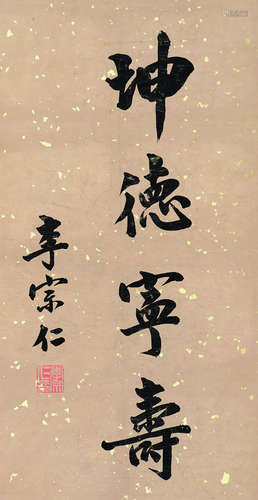 坤德寧壽
李宗仁